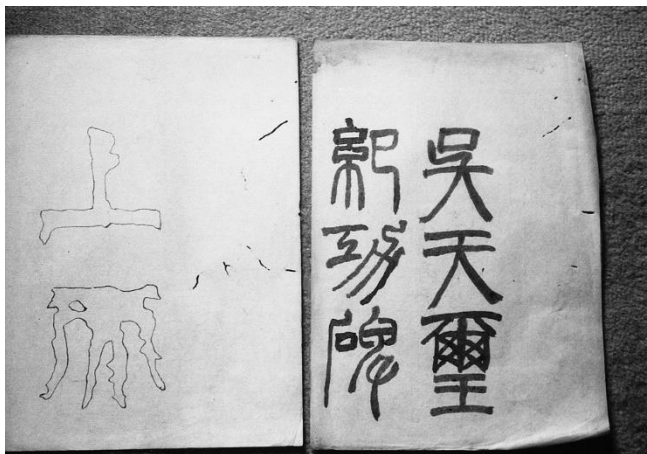 吳天璽
紀功碑
上